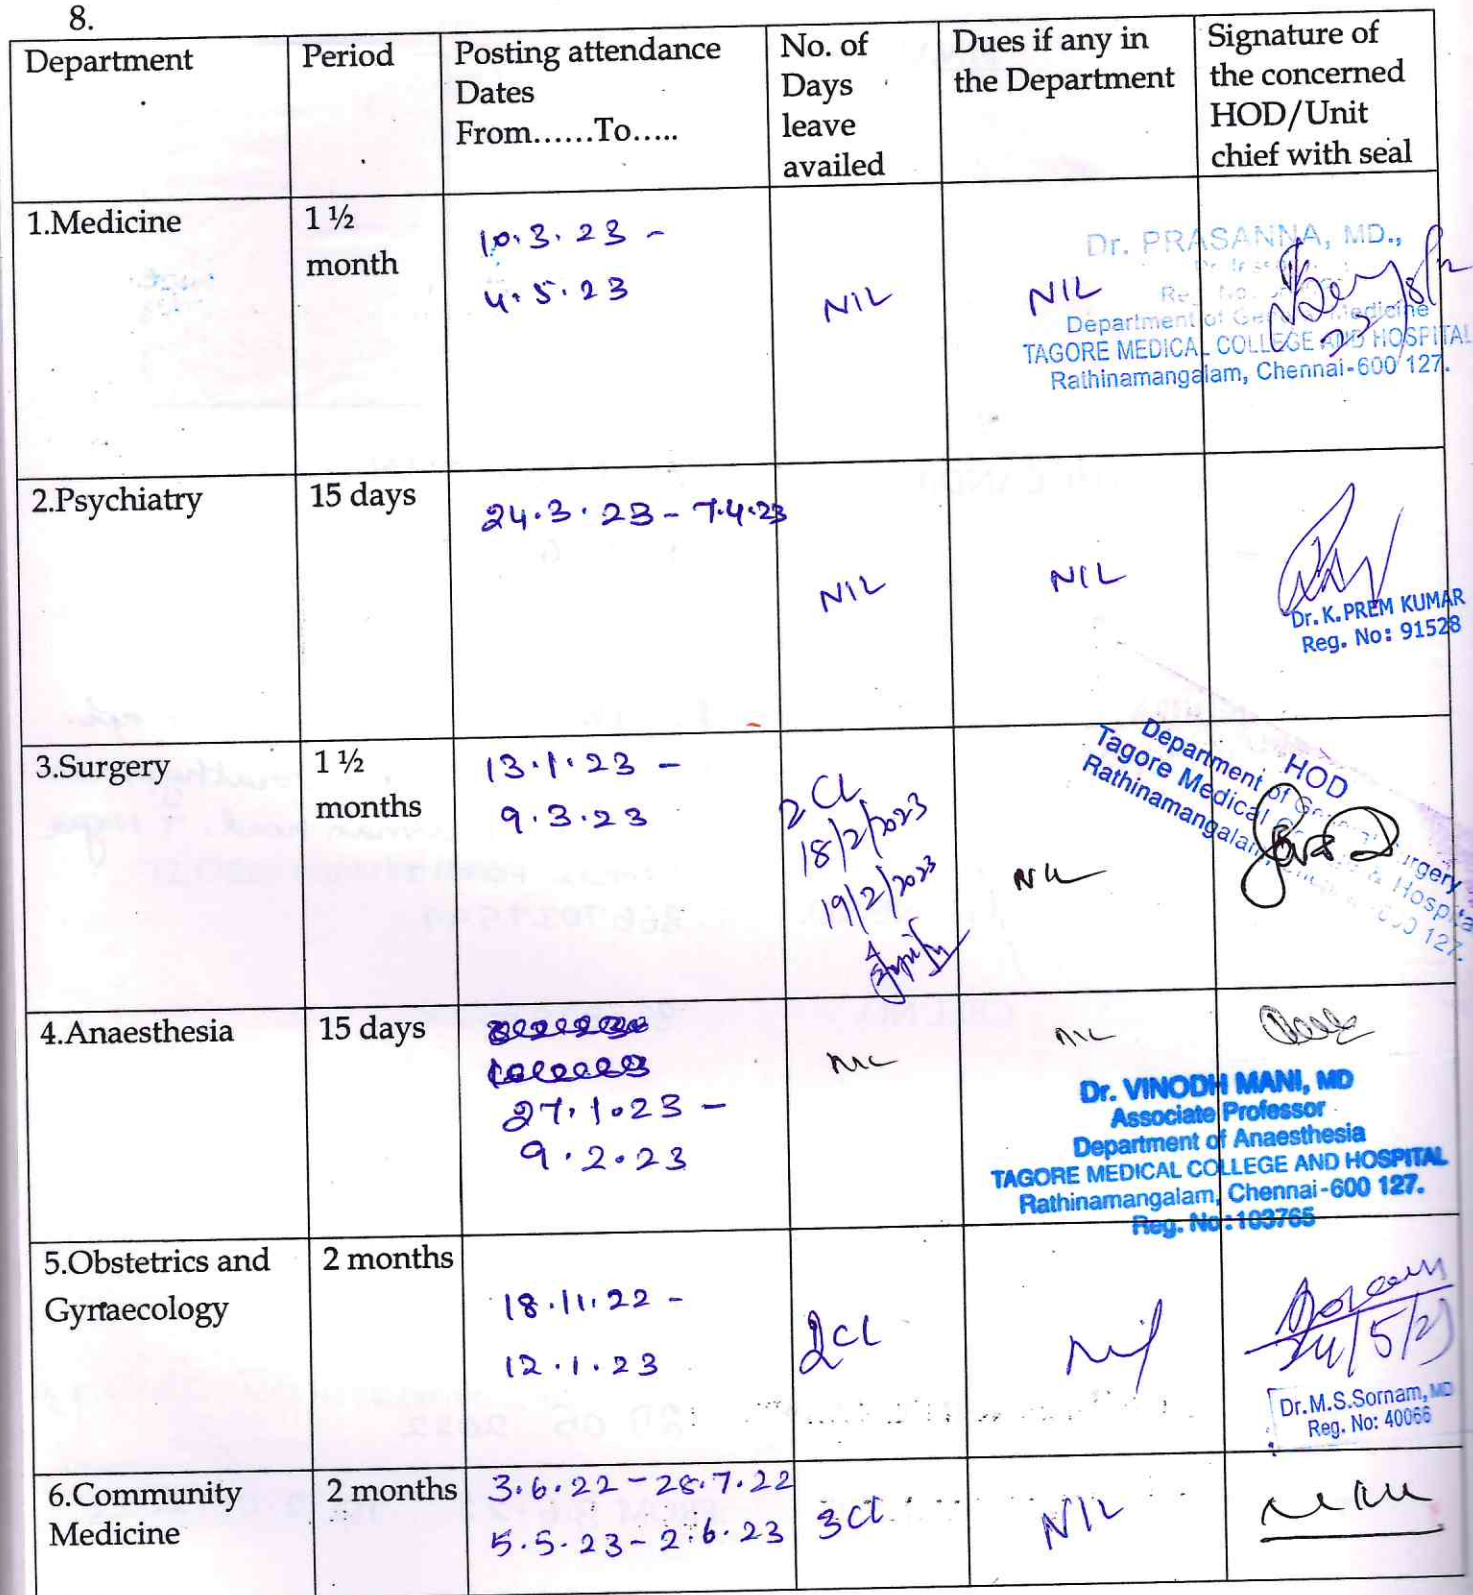 8.
Department
Period
Posting attendance
Dates
From......To.....
No. of
Days
leave
availed
Dues if any in
the Department
Signature of
the concerned
HOD/Unit
chief with seal
1.Medicine
1 ½
month
10.3.23 -
4.5.23
NIL
NIL
Dr. PRASANNA, MD.,
Department of General Medicine
TAGORE MEDICAL COLLEGE AND HOSPITAL
Rathinamangalam, Chennai-600 127.
2.Psychiatry
15 days
24.3.23 - 7.4.23
NIL
NIL
Dr. K. PREM KUMAR
Reg. No: 91528
3.Surgery
1 ½
months
13.1.23 -
9.3.23
2 CL
18/2/2023
19/2/2023
Nil
HOD
Department of General Surgery
Tagore Medical College & Hospital
Rathinamangalam, 600 127.
4.Anaesthesia
15 days
27.1.23 -
9.2.23
NIL
NIL
Dr. VINODH MANI, MD
Associate Professor
Department of Anaesthesia
TAGORE MEDICAL COLLEGE AND HOSPITAL
Rathinamangalam, Chennai-600 127.
Reg. No:103765
5.Obstetrics and
Gynaecology
2 months
18.11.22 -
12.1.23
2CL
Nil
Dr.M.S.Sornam, MD
Reg. No: 40066
6.Community
Medicine
2 months
3.6.22 - 28.7.22
5.5.23 - 2.6.23
3CL
NIL